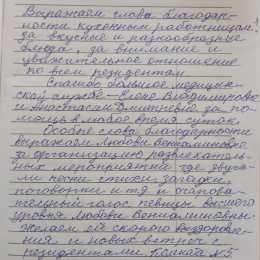 Выражаем слова благодар-
ности кухонным работницам
за вкусные и разнообразные
блюда, за внимание и
уважительное отношение
ко всем резидентам.
Спасибо большое медицин-
ской службе Елене Владимировне
и Анастасии Олеговне за по-
мощь в любое время суток.
Особые слова благодарности
выражаем Любови Вениаминовне
за организацию развлекатель-
ных мероприятий где звуча-
ли песни стихи загадки,
поговорки и т.д и очарова-
тельный голос певицы высшего
уровня Любови Вениаминовны
желаем ей скорого выздоровле-
ния и новых встреч с
резидентами Комната №5